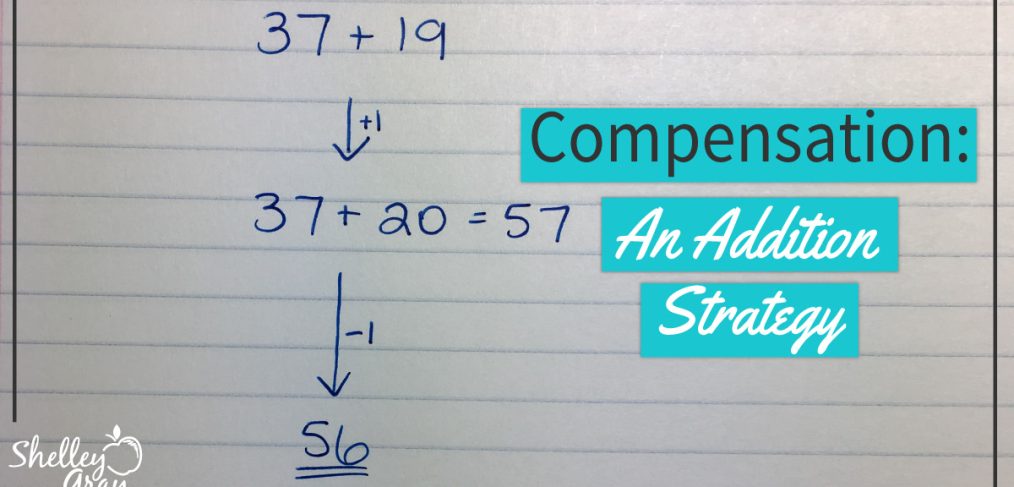 37 + 19
+1
37 + 20 = 57
-1
56
Compensation:
An Addition
Strategy
Shelley
Gray